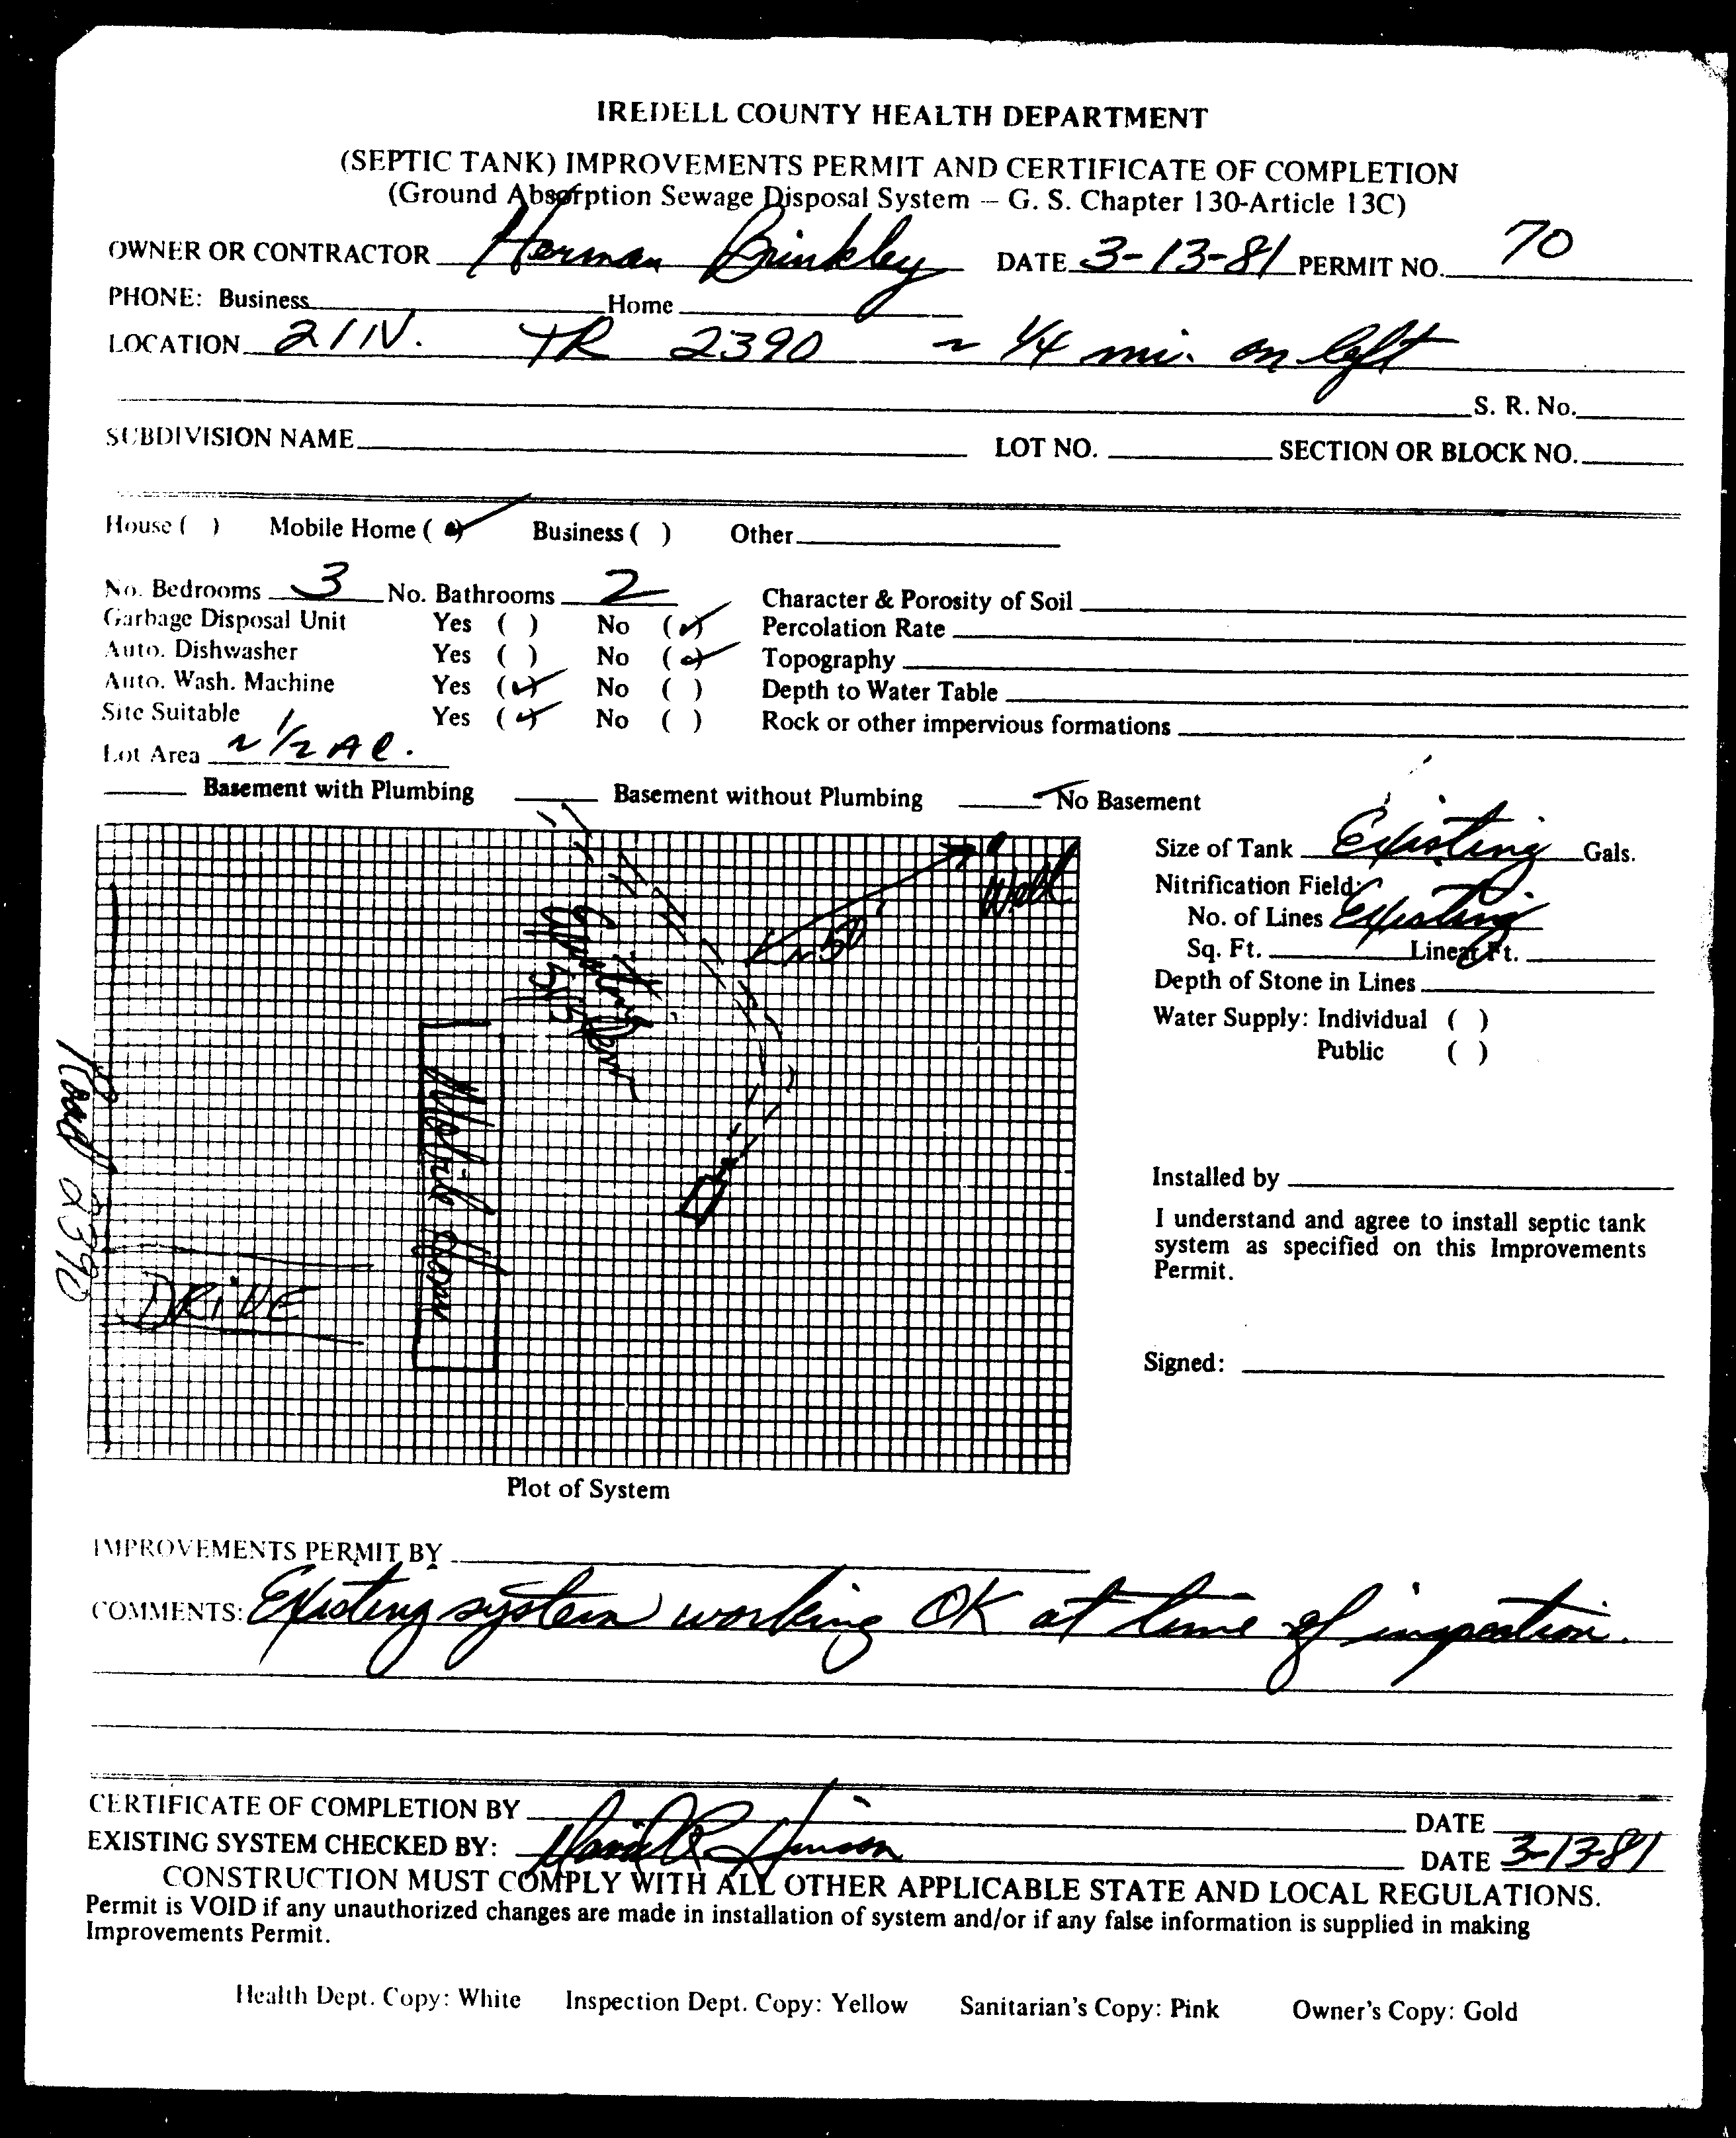 IREDELL COUNTY HEALTH DEPARTMENT
(SEPTIC TANK) IMPROVEMENTS PERMIT AND CERTIFICATE OF COMPLETION
(Ground Absorption Sewage Disposal System - G. S. Chapter 130-Article 13C)
OWNER OR CONTRACTOR Herman Brinkley DATE 3-13-81 PERMIT NO. 70
PHONE: Business Home
LOCATION 21N. TR 2390 ~ 1/4 mi. on left
S. R. No.
SUBDIVISION NAME LOT NO. SECTION OR BLOCK NO.
House ( ) Mobile Home (✓) Business ( ) Other
No. Bedrooms 3 No. Bathrooms 2 Character & Porosity of Soil
Garbage Disposal Unit Yes ( ) No (✓) Percolation Rate
Auto. Dishwasher Yes ( ) No (✓) Topography
Auto. Wash. Machine Yes (✓) No ( ) Depth to Water Table
Site Suitable Yes (✓) No ( ) Rock or other impervious formations
Lot Area ~ 1/2 AC.
Basement with Plumbing Basement without Plumbing No Basement
Size of Tank Existing Gals.
Nitrification Field:
No. of Lines Existing
Sq. Ft. Linear Ft.
Depth of Stone in Lines
Water Supply: Individual ( )
Public ( )
Well
~50'
Mobile Home
Road 2390
DRIVE
Installed by
I understand and agree to install septic tank
system as specified on this Improvements
Permit.
Signed:
Plot of System
IMPROVEMENTS PERMIT BY
COMMENTS: Existing system working OK at time of inspection.
CERTIFICATE OF COMPLETION BY DATE
EXISTING SYSTEM CHECKED BY: David R. Hinson DATE 3-13-81
CONSTRUCTION MUST COMPLY WITH ALL OTHER APPLICABLE STATE AND LOCAL REGULATIONS.
Permit is VOID if any unauthorized changes are made in installation of system and/or if any false information is supplied in making
Improvements Permit.
Health Dept. Copy: White Inspection Dept. Copy: Yellow Sanitarian's Copy: Pink Owner's Copy: Gold